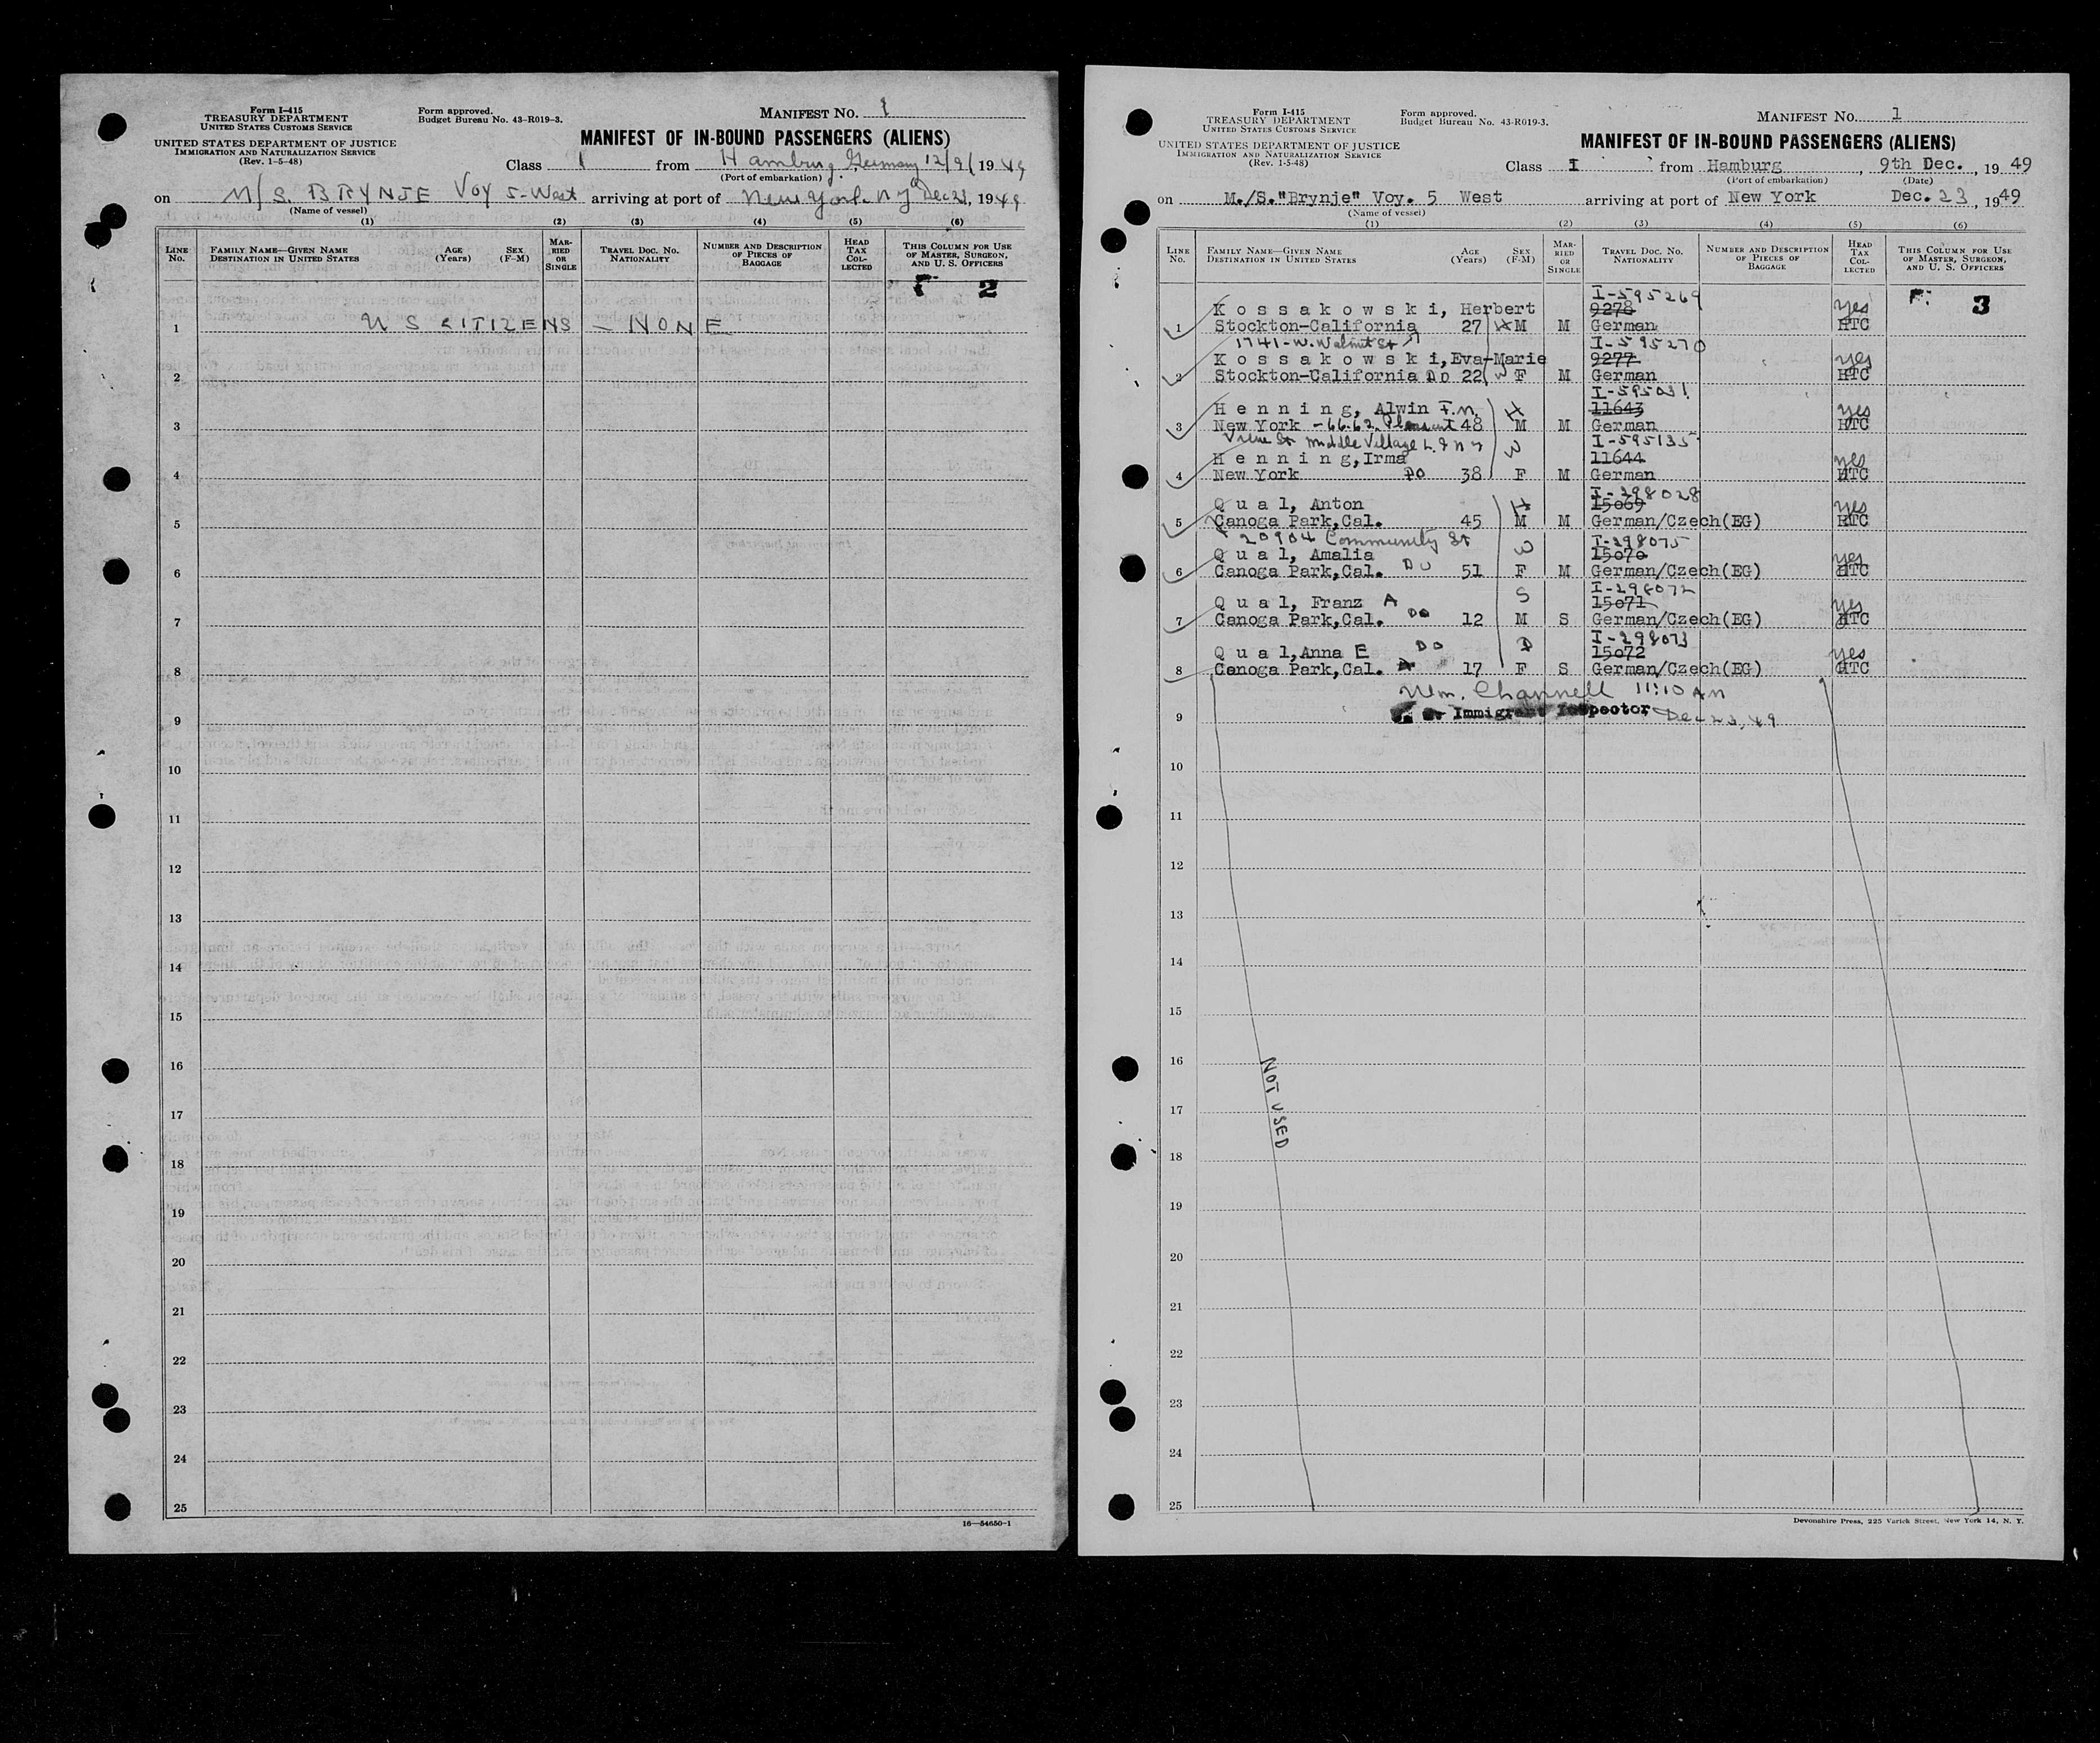 Form I-415
TREASURY DEPARTMENT
UNITED STATES CUSTOMS SERVICE
UNITED STATES DEPARTMENT OF JUSTICE
IMMIGRATION AND NATURALIZATION SERVICE
(Rev. 1-5-48)
Form approved.
Budget Bureau No. 43-R019-3.
MANIFEST No. 1
MANIFEST OF IN-BOUND PASSENGERS (ALIENS)
Class 1 from Hamburg, Germany 12/9/1949
(Port of embarkation)
on M/S. BRYNJE Voy 5-West arriving at port of New York. N Y Dec 23, 1949
(Name of vessel)
(1) (2) (3) (4) (5) (6)
LINE No. FAMILY NAME—GIVEN NAME DESTINATION IN UNITED STATES AGE (Years) SEX (F-M) MARRIED OR SINGLE TRAVEL DOC. No. NATIONALITY NUMBER AND DESCRIPTION OF PIECES OF BAGGAGE HEAD TAX COLLECTED THIS COLUMN FOR USE OF MASTER, SURGEON, AND U. S. OFFICERS
2
1 U S CITIZENS — NONE
2
3
4
5
6
7
8
9
10
11
12
13
14
15
16
17
18
19
20
21
22
23
24
25
16—54650-1
Form I-415
TREASURY DEPARTMENT
UNITED STATES CUSTOMS SERVICE
UNITED STATES DEPARTMENT OF JUSTICE
IMMIGRATION AND NATURALIZATION SERVICE
(Rev. 1-5-48)
Form approved.
Budget Bureau No. 43-R019-3.
MANIFEST No. 1
MANIFEST OF IN-BOUND PASSENGERS (ALIENS)
Class I from Hamburg, 9th Dec., 1949
(Port of embarkation) (Date)
on M./S."Brynje" Voy. 5 West arriving at port of New York Dec. 23, 1949
(Name of vessel)
(1) (2) (3) (4) (5) (6)
LINE No. FAMILY NAME—GIVEN NAME DESTINATION IN UNITED STATES AGE (Years) SEX (F-M) MARRIED OR SINGLE TRAVEL DOC. No. NATIONALITY NUMBER AND DESCRIPTION OF PIECES OF BAGGAGE HEAD TAX COLLECTED THIS COLUMN FOR USE OF MASTER, SURGEON, AND U. S. OFFICERS
I-595269
K o s s a k o w s k i, Herbert 9278 yes 3
1 Stockton-California 27 H M M German HTC
1741-W. Walnut St I-595270
K o s s a k o w s k i,Eva-Marie 9277 yes
2 Stockton-California DO 22 W F M German HTC
I-595031
H e n n i n g, Alwin F.M. H 11643 yes
3 New York -66-62 Pleasant 48 M M German HTC
View St Middle Village L. I N Y W I-595135
H e n n i n g,Irma 11644 yes
4 New York DO 38 F M German HTC
I-298028
Q u a l, Anton H 15069 yes
5 Canoga Park,Cal. 45 M M German/Czech(EG) HTC
20904 Community St I-298075
Q u a l, Amalia W 15070 yes
6 Canoga Park,Cal. DO 51 F M German/Czech(EG) HTC
I-298072
Q u a l, Franz A S 15071 yes
7 Canoga Park,Cal. DO 12 M S German/Czech(EG) HTC
I-298073
Q u a l,Anna E DO D 15072 yes
8 Canoga Park,Cal. 17 F S German/Czech(EG) HTC
Wm. Channell 11:10 AM
9 Immigrant Inspector Dec 23, 49
10
11
12
13
14
15
16
NOT USED
17
18
19
20
21
22
23
24
25
Devonshire Press, 225 Varick Street, New York 14, N. Y.